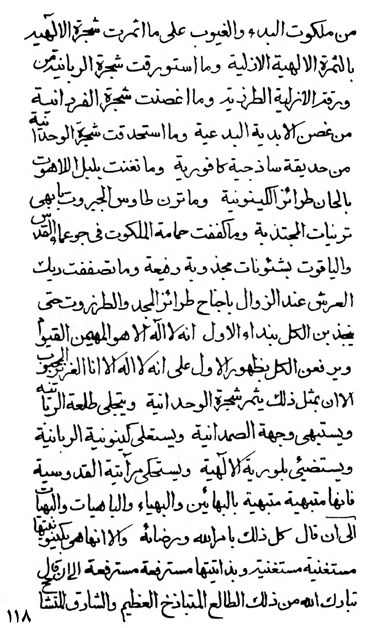 من ملكوت البدء والغيوب على ما اثمرت شجرة الالهية
بالثمرة الالهية الازلية وما استورقت شجرة الربانية من
ورقة الازلية الطرزية وما اغصنت شجرة الفردانية
من غصن الابدية البدعية وما استحدقت شجرة الوحدانية
من حديقة ساذجية كافورية وما تغنت بلبل اللاهوت
بالحان طرائز الكينونية وما ترن طاوس الجبروت بابهى
ترنيات المجتذبة وما كففت حمامة الملكوت في جو عماء القدس
والياقوت بشئونات مجذوبة رفيعة وما تصففت ديك
العرش عند الزوال باجناح طرائز المجد والطرزوت حتى
يجذبن الكل بنداء الاول انه لا اله الا هو المهيمن القيوم
ويرفعن الكل بظهور الاول على انه لا اله الا انا العزيز المحبوب
الا ان بمثل ذلك يثمر شجرة الوحدانية ويتجلى طلعة الربانية
ويستبهى وجهة الصمدانية ويستعلى كينونية الربانية
ويستضيئ بلورية الالهية ويستحكي مرآتية القدوسية
فانها متبهية متبهية بالبهائين والبهياء والباهيات والبهات
الى ان قال كل ذلك بامر الله ورضائه والا انها هي بكينونيتها
مستغنية مستغنية وبذاتيتها مسترفعة مسترفعة الى ان قال
تبارك الله من ذلك الطالع المتباذخ العظيم والشارق
١١٨